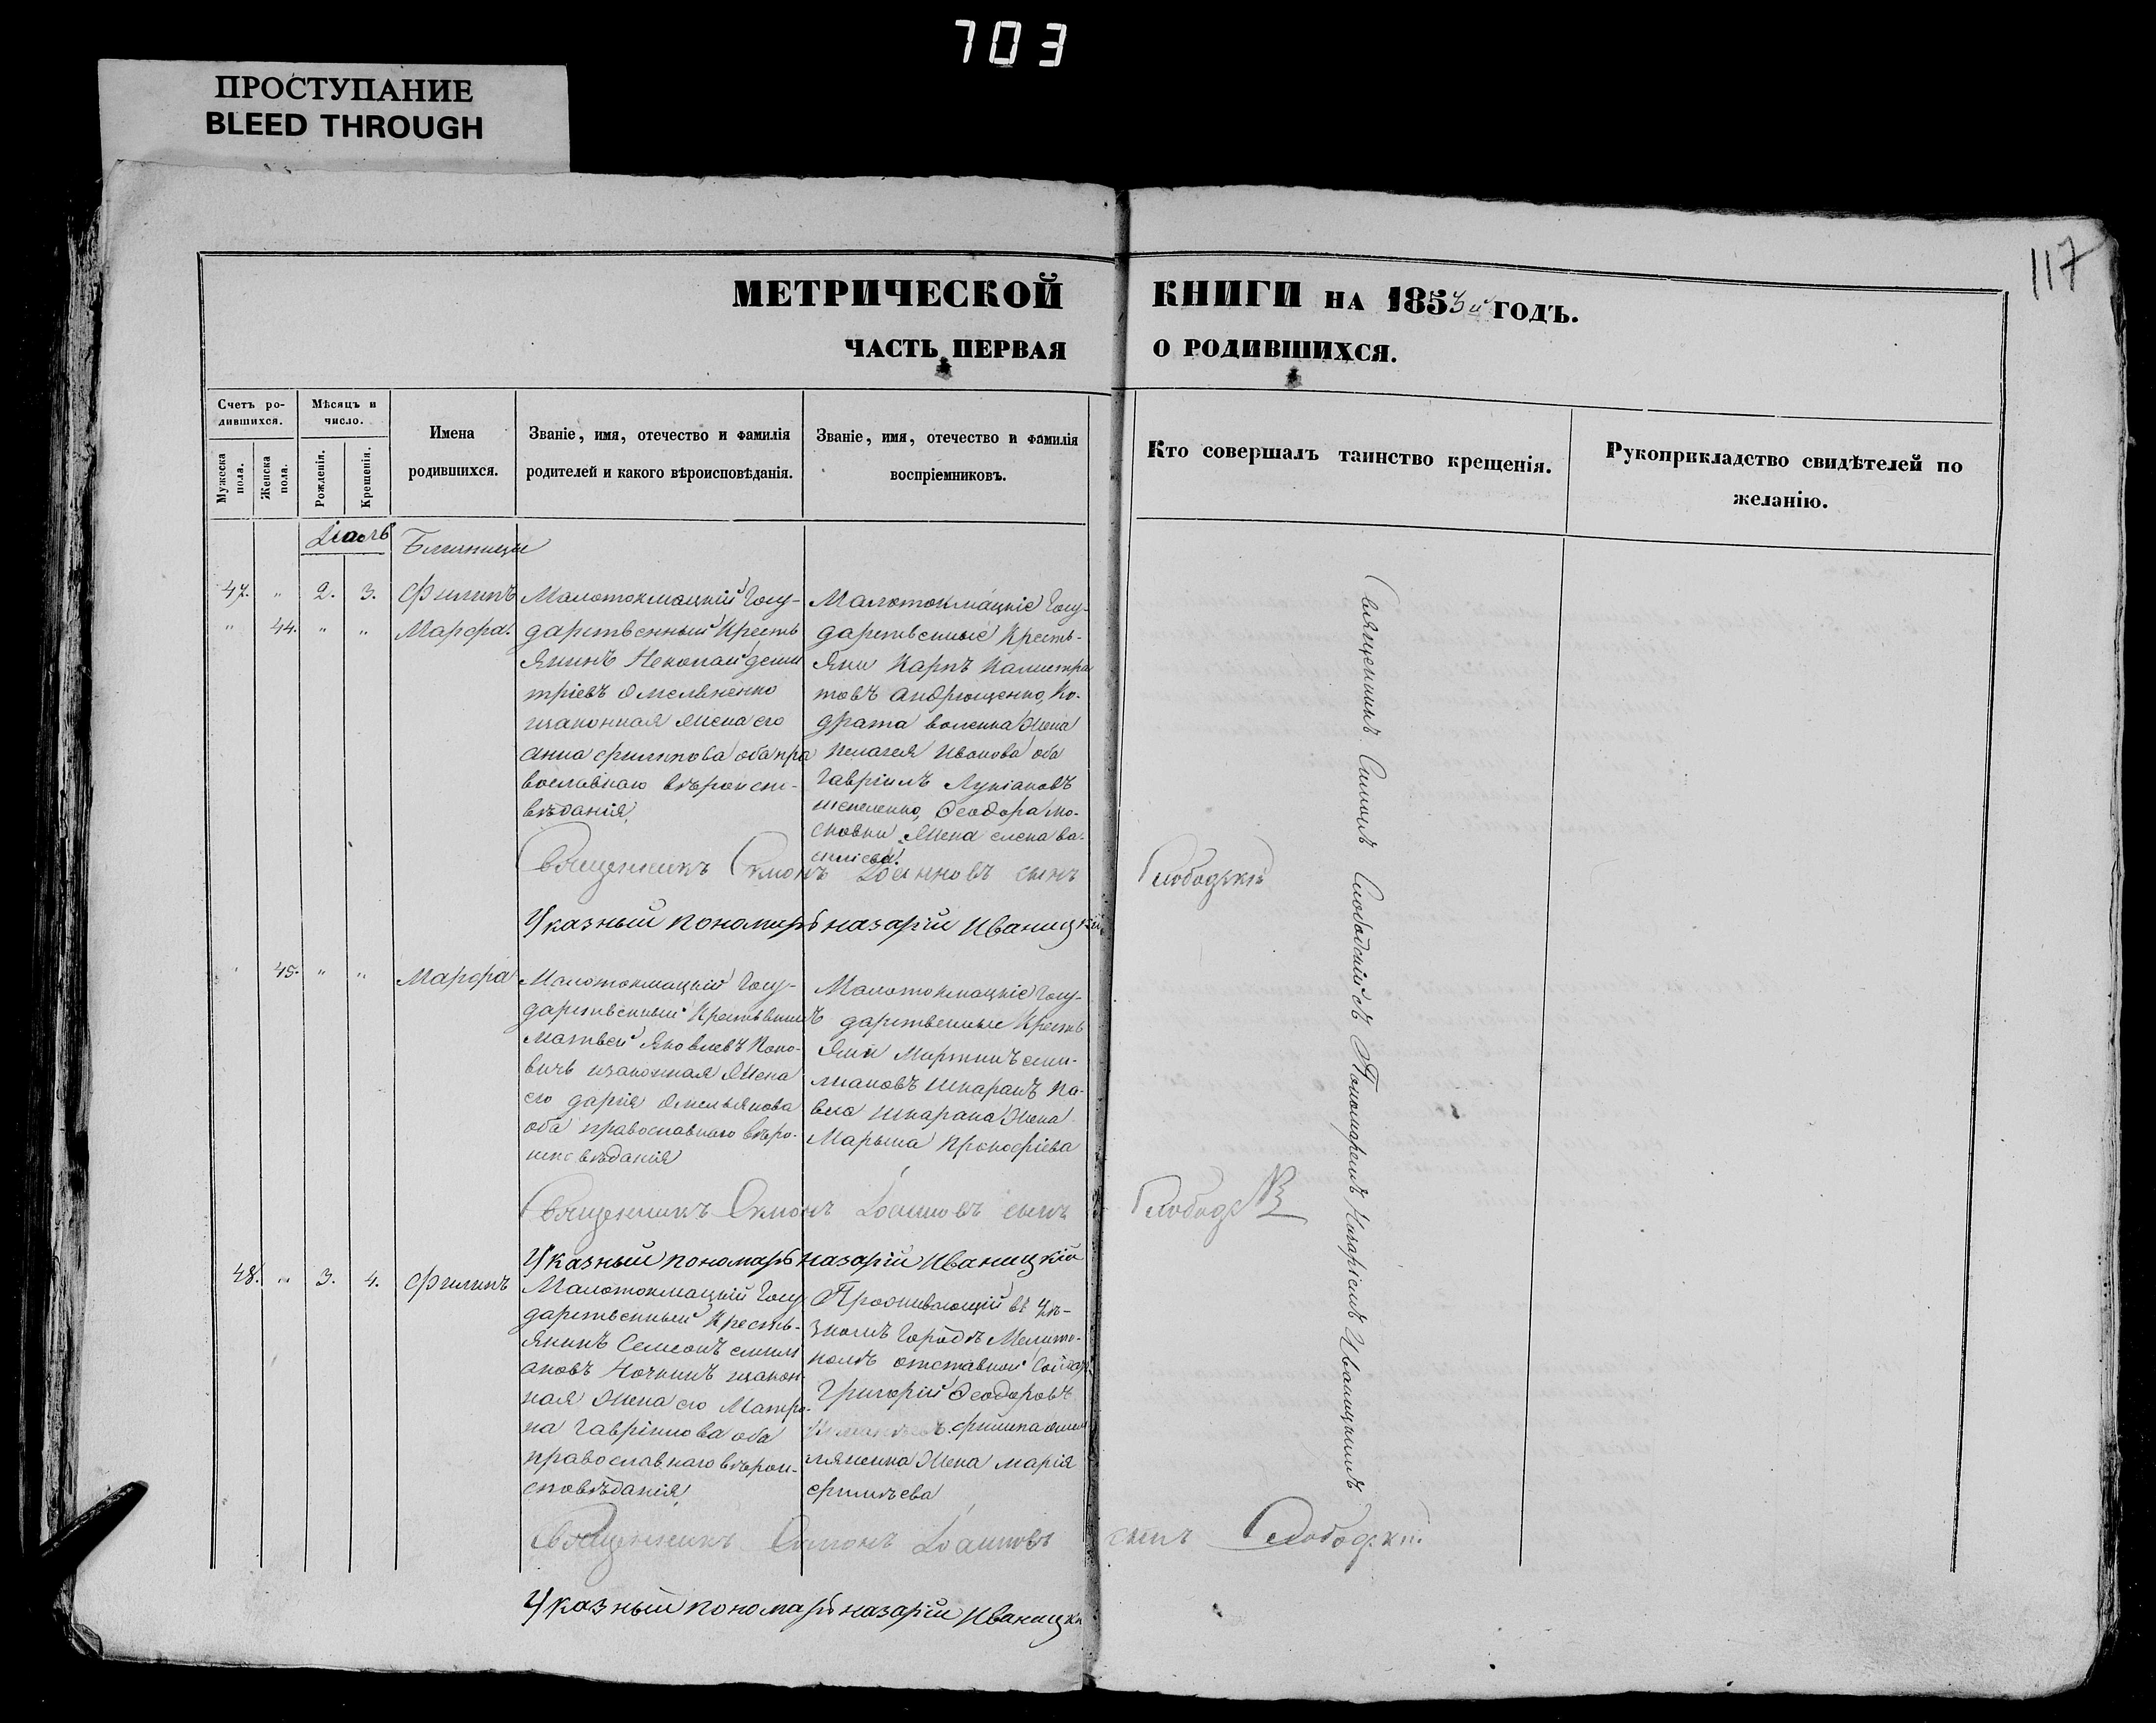 703
ПРОСТУПАНИЕ
BLEED THROUGH
117
МЕТРИЧЕСКОЙ КНИГИ НА 1853й ГОДЪ.
ЧАСТЬ ПЕРВАЯ О РОДИВШИХСЯ.
Счетъ родившихся.
Мужеска пола.
Женска пола.
Мѣсяцъ и число.
Рожденія.
Крещенія.
Имена родившихся.
Званіе, имя, отечество и фамилія родителей и какого вѣроисповѣданія.
Званіе, имя, отечество и фамилія воспріемниковъ.
Кто совершалъ таинство крещенія.
Рукоприкладство свидѣтелей по желанію.
Іюль
Близницы
47. " 2. 3. Филипъ
" 44. " " Марфа.
Малотокмацкій Госу-
дарственный Кресть
янинъ Николай Дими
тріевъ Омельненко
изаконная жена его
анна филипова оба пра
вославнаго вѣроиспо-
вѣданія,
Малотокмацкіе Госу-
дарственные Кресть-
яни Карпъ Калистра
товъ андрющенко, Ко-
драта жена
пелагея Иванова оба
Гавріилъ Лукіановъ
Ѳеодора Мо-
сковки жена елена ва-
силіева.
Священникъ Симонъ Іоанновъ сынъ Слободзкій
Указный пономарь назарій Иваницкій
" 45. " " Марфа
Малотокмацкій Госу-
дарственный Крестьянинъ
матвей Яковлевъ Попо-
вичь изаконная жена
его дарія Омельянова
оба православнаго вѣро-
исповѣданія
Малотокмацкіе Госу-
дарственные Кресть
яни Мартинъ еми-
ліановъ шкарапъ Па-
вла шкарапа жена
Марьяна Прокофіева
Священникъ Симонъ Іоанновъ сынъ
Указный пономарь назарій Иваницкій
48. " 3. 4. Филипъ
Малотокмацкій Госу
дарственный Кресть-
янинъ Семеонъ емили
ановъ изакон-
ная жена его Матро-
на Гавріилова оба
православнаго вѣрои-
сповѣданія
Проживающій въ Уѣ-
зномъ Городѣ Мелито-
полѣ отставной Солдат
Григорій Ѳеодоровъ
филипа Омел
ляненка жена марія
Священникъ Симонъ Іоанновъ сынъ Слободзкій
Указный пономарь назарій Иваницкій
Священникъ Симонъ Слободскій съ Пономаремъ Назаріемъ Иваницкимъ